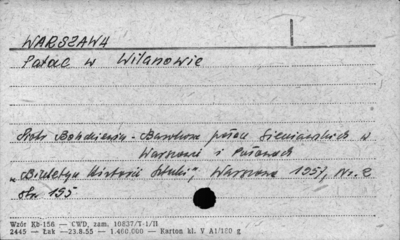 WARSZAWA
Pałac w Wilanowie
Piotr Bohdziewicz - Barokowe pałace Sieniawskich w
Warszawie i Puławach
„Biuletyn Historii Sztuki", Warszawa 1951, Nr. 2
str. 195
Wzór Kb-156 — CWD, zam. 10837/T-1/B
2445 — Łak —23.8.55 — 1.460.000 — Karton kl. V A1/180 g